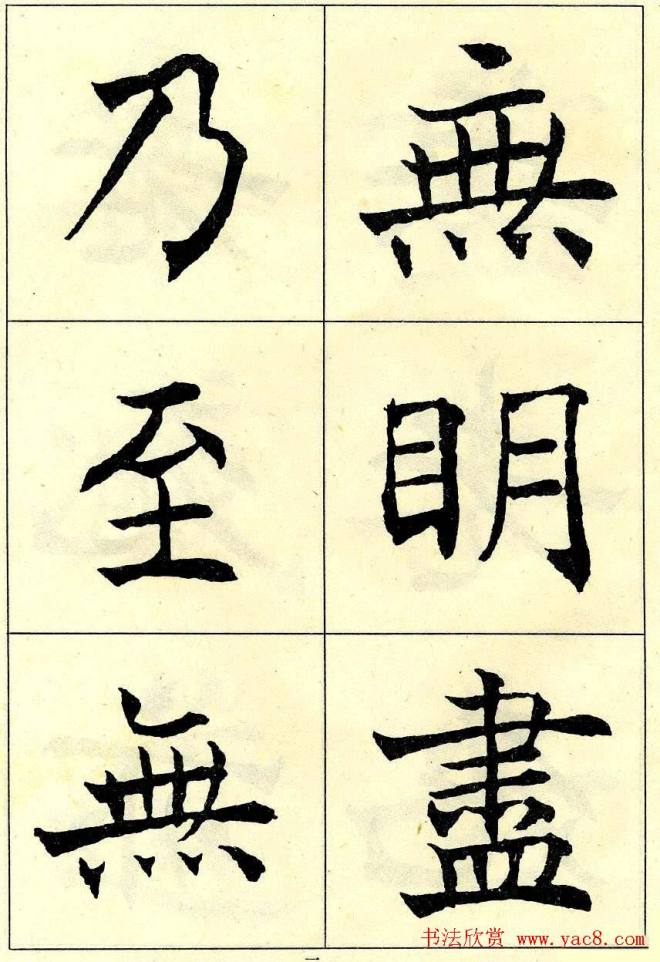 無明盡
乃至無
书法欣赏 www.yac8.com